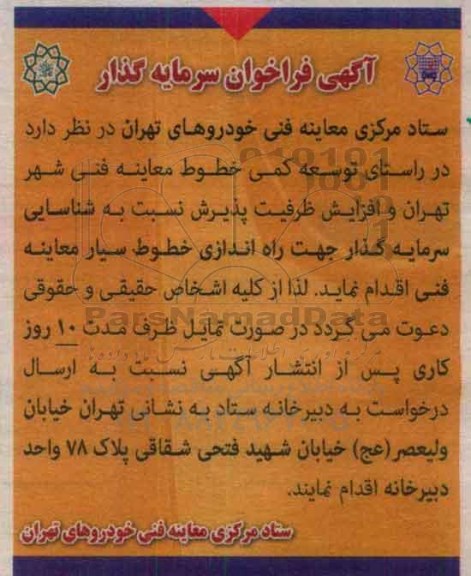 آگهی فراخوان سرمایه گذار
ستاد مرکزی معاینه فنی خودروهای تهران در نظر دارد
در راستای توسعه کمی خطوط معاینه فنی شهر
تهران و افزایش ظرفیت پذیرش نسبت به شناسایی
سرمایه گذار جهت راه اندازی خطوط سیار معاینه
فنی اقدام نماید. لذا از کلیه اشخاص حقیقی و حقوقی
دعوت می گردد در صورت تمایل ظرف مدت ۱۰ روز
کاری پس از انتشار آگهی نسبت به ارسال
درخواست به دبیرخانه ستاد به نشانی تهران خیابان
ولیعصر (عج) خیابان شهید فتحی شقاقی پلاک ۷۸ واحد
دبیرخانه اقدام نمایند.
ستاد مرکزی معاینه فنی خودروهای تهران
ParsNamadData